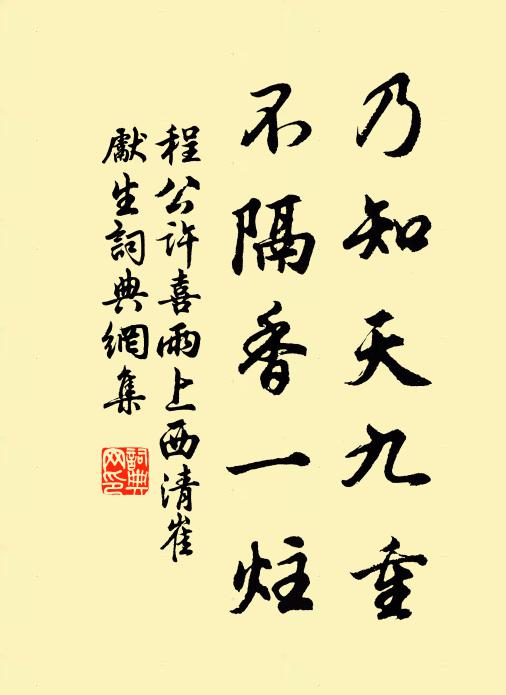 乃知天九重
不隔香一炷
程公许喜雨上西清崔
献生詞典網集
詞典
网印